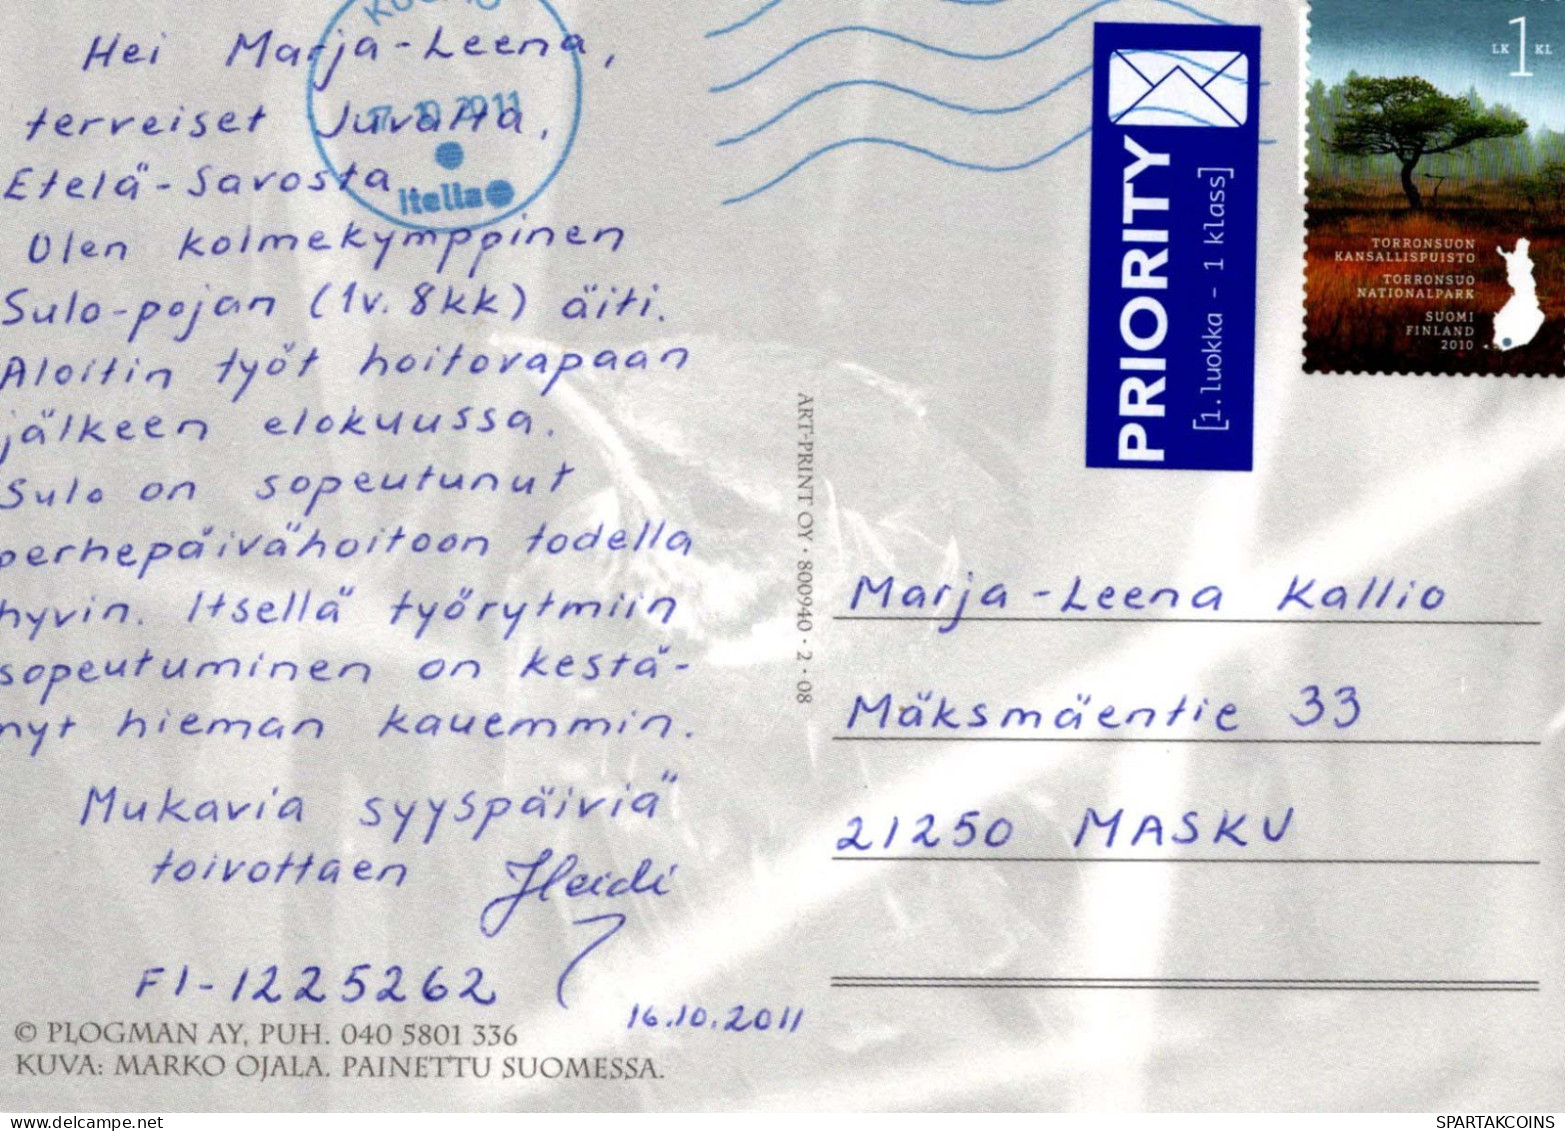 Hei Marja-Leena,
terveiset Juvalta,
Etelä-Savosta
Olen kolmekymppinen
Sulo-pojan (1v. 8kk) äiti.
Aloitin työt hoitovapaan
jälkeen elokuussa.
Sulo on sopeutunut
perhepäivähoitoon todella
hyvin. Itsellä työrytmiin
sopeutuminen on kestä-
nyt hieman kauemmin.
Mukavia syyspäiviä
toivottaen Heidi
FI-1225262
16.10.2011
© PLOGMAN AY, PUH. 040 5801 336
KUVA: MARKO OJALA. PAINETTU SUOMESSA.
2011
Itella
ART-PRINT OY · 800940 · 2 · 08
PRIORITY
[1.luokka – 1 klass]
LK 1 KL
TORRONSUON
KANSALLISPUISTO
TORRONSUO
NATIONALPARK
SUOMI
FINLAND
2010
Marja-Leena Kallio
Mäksmäentie 33
21250 MASKU
delcampe.net
SPARTAKCOINS